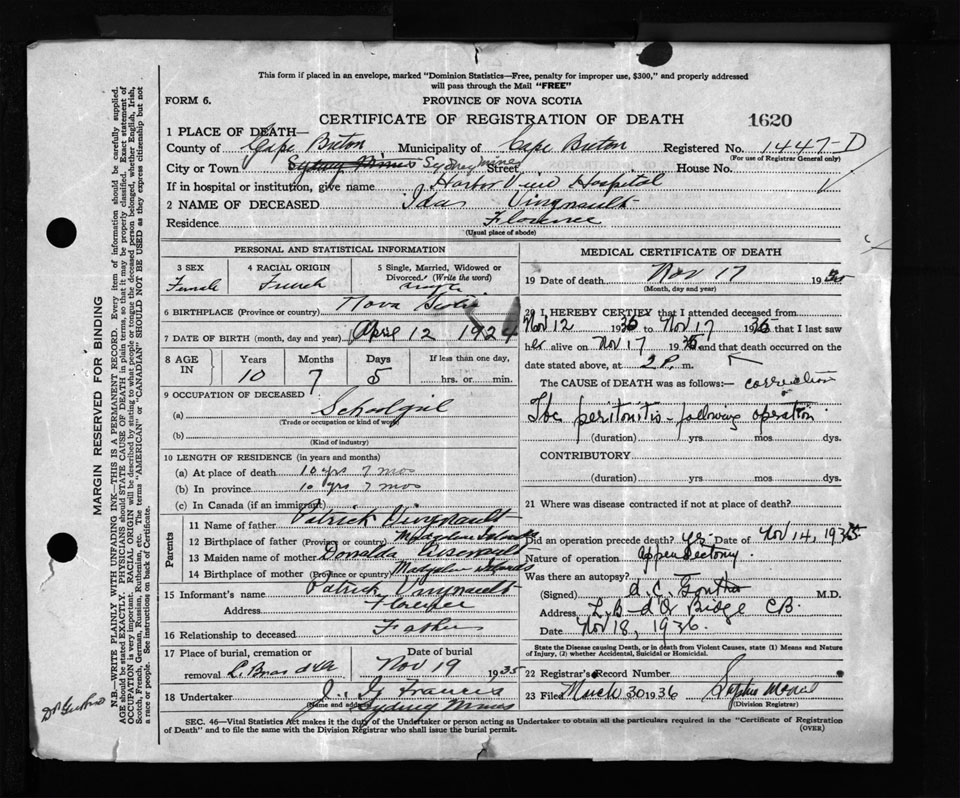 This form if placed in an envelope, marked "Dominion Statistics—Free, penalty for improper use, $300," and properly addressed
will pass through the Mail "FREE"
FORM 6.
PROVINCE OF NOVA SCOTIA
CERTIFICATE OF REGISTRATION OF DEATH
1620
1 PLACE OF DEATH—
County of Cape Breton Municipality of Cape Breton Registered No. 1447-D
(For use of Registrar General only)
City or Town Sydney Mines Sydney Mines Street House No.
If in hospital or institution, give name Harbor View Hospital
2 NAME OF DECEASED Ida Vingnault
Residence Florence
(Usual place of abode)
PERSONAL AND STATISTICAL INFORMATION
3 SEX
Female
4 RACIAL ORIGIN
French
5 Single, Married, Widowed or Divorced? (Write the word)
Single
6 BIRTHPLACE (Province or country) Nova Scotia
7 DATE OF BIRTH (month, day and year) April 12 1924
8 AGE IN
Years Months Days If less than one day,
10 7 5 hrs. or min.
9 OCCUPATION OF DECEASED
(a) Schoolgirl
(Trade or occupation or kind of work)
(b)
(Kind of industry)
10 LENGTH OF RESIDENCE (in years and months)
(a) At place of death 10 yrs 7 mos
(b) In province 10 yrs 7 mos
(c) In Canada (if an immigrant)
Parents
11 Name of father Patrick Vingnault
12 Birthplace of father Magdalen Islands
(Province or country)
13 Maiden name of mother Donalda
14 Birthplace of mother Magdalen Islands
(Province or country)
15 Informant's name Patrick Vingnault
Address Florence
16 Relationship to deceased Father
17 Place of burial, cremation or removal
L. Bras d'Or
Date of burial
Nov 19 1935
18 Undertaker J. G Francis
(Name and address) Sydney Mines
MEDICAL CERTIFICATE OF DEATH
19 Date of death Nov 17 19
(Month, day and year)
20 I HEREBY CERTIFY that I attended deceased from
Nov 12 1935 to Nov 17 1935 that I last saw
her alive on Nov 17 1935 and that death occurred on the
date stated above, at 2 P. m.
The CAUSE OF DEATH was as follows:— correction
Tbc peritonitis - following operation
(duration) yrs mos dys.
CONTRIBUTORY
(duration) yrs mos dys.
21 Where was disease contracted if not at place of death?
Did an operation precede death? yes Date of Nov 14, 1935
Nature of operation appendectomy
Was there an autopsy?
(Signed) A. C. M.D.
Address L. B d'Or Bridge C.B.
Date Nov 18, 1936.
State the Disease causing Death, or in death from Violent Causes, state (1) Means and Nature of Injury, (2) whether Accidental, Suicidal or Homicidal.
22 Registrar's Record Number
23 Filed March 30 1936 Sophie
(Division Registrar)
SEC. 46—Vital Statistics Act makes it the duty of the Undertaker or person acting as Undertaker to obtain all the particulars required in the "Certificate of Registration
of Death" and to file the same with the Division Registrar who shall issue the burial permit.
(OVER)
MARGIN RESERVED FOR BINDING
N.B—WRITE PLAINLY WITH UNFADING INK—THIS IS A PERMANENT RECORD. Every item of information should be carefully supplied.
AGE should be stated EXACTLY. PHYSICIANS should STATE CAUSE OF DEATH in plain terms, so that it may be properly classified. Exact statement of
OCCUPATION is very important. RACIAL ORIGIN will be described by stating to what people or tongue the deceased person belonged, whether English, Irish,
Scotch, French, German, Russian, Ruthenian, etc. The terms "AMERICAN" or "CANADIAN" SHOULD NOT BE USED as they express citizenship but not
a race or people. See instructions on back of Certificate.